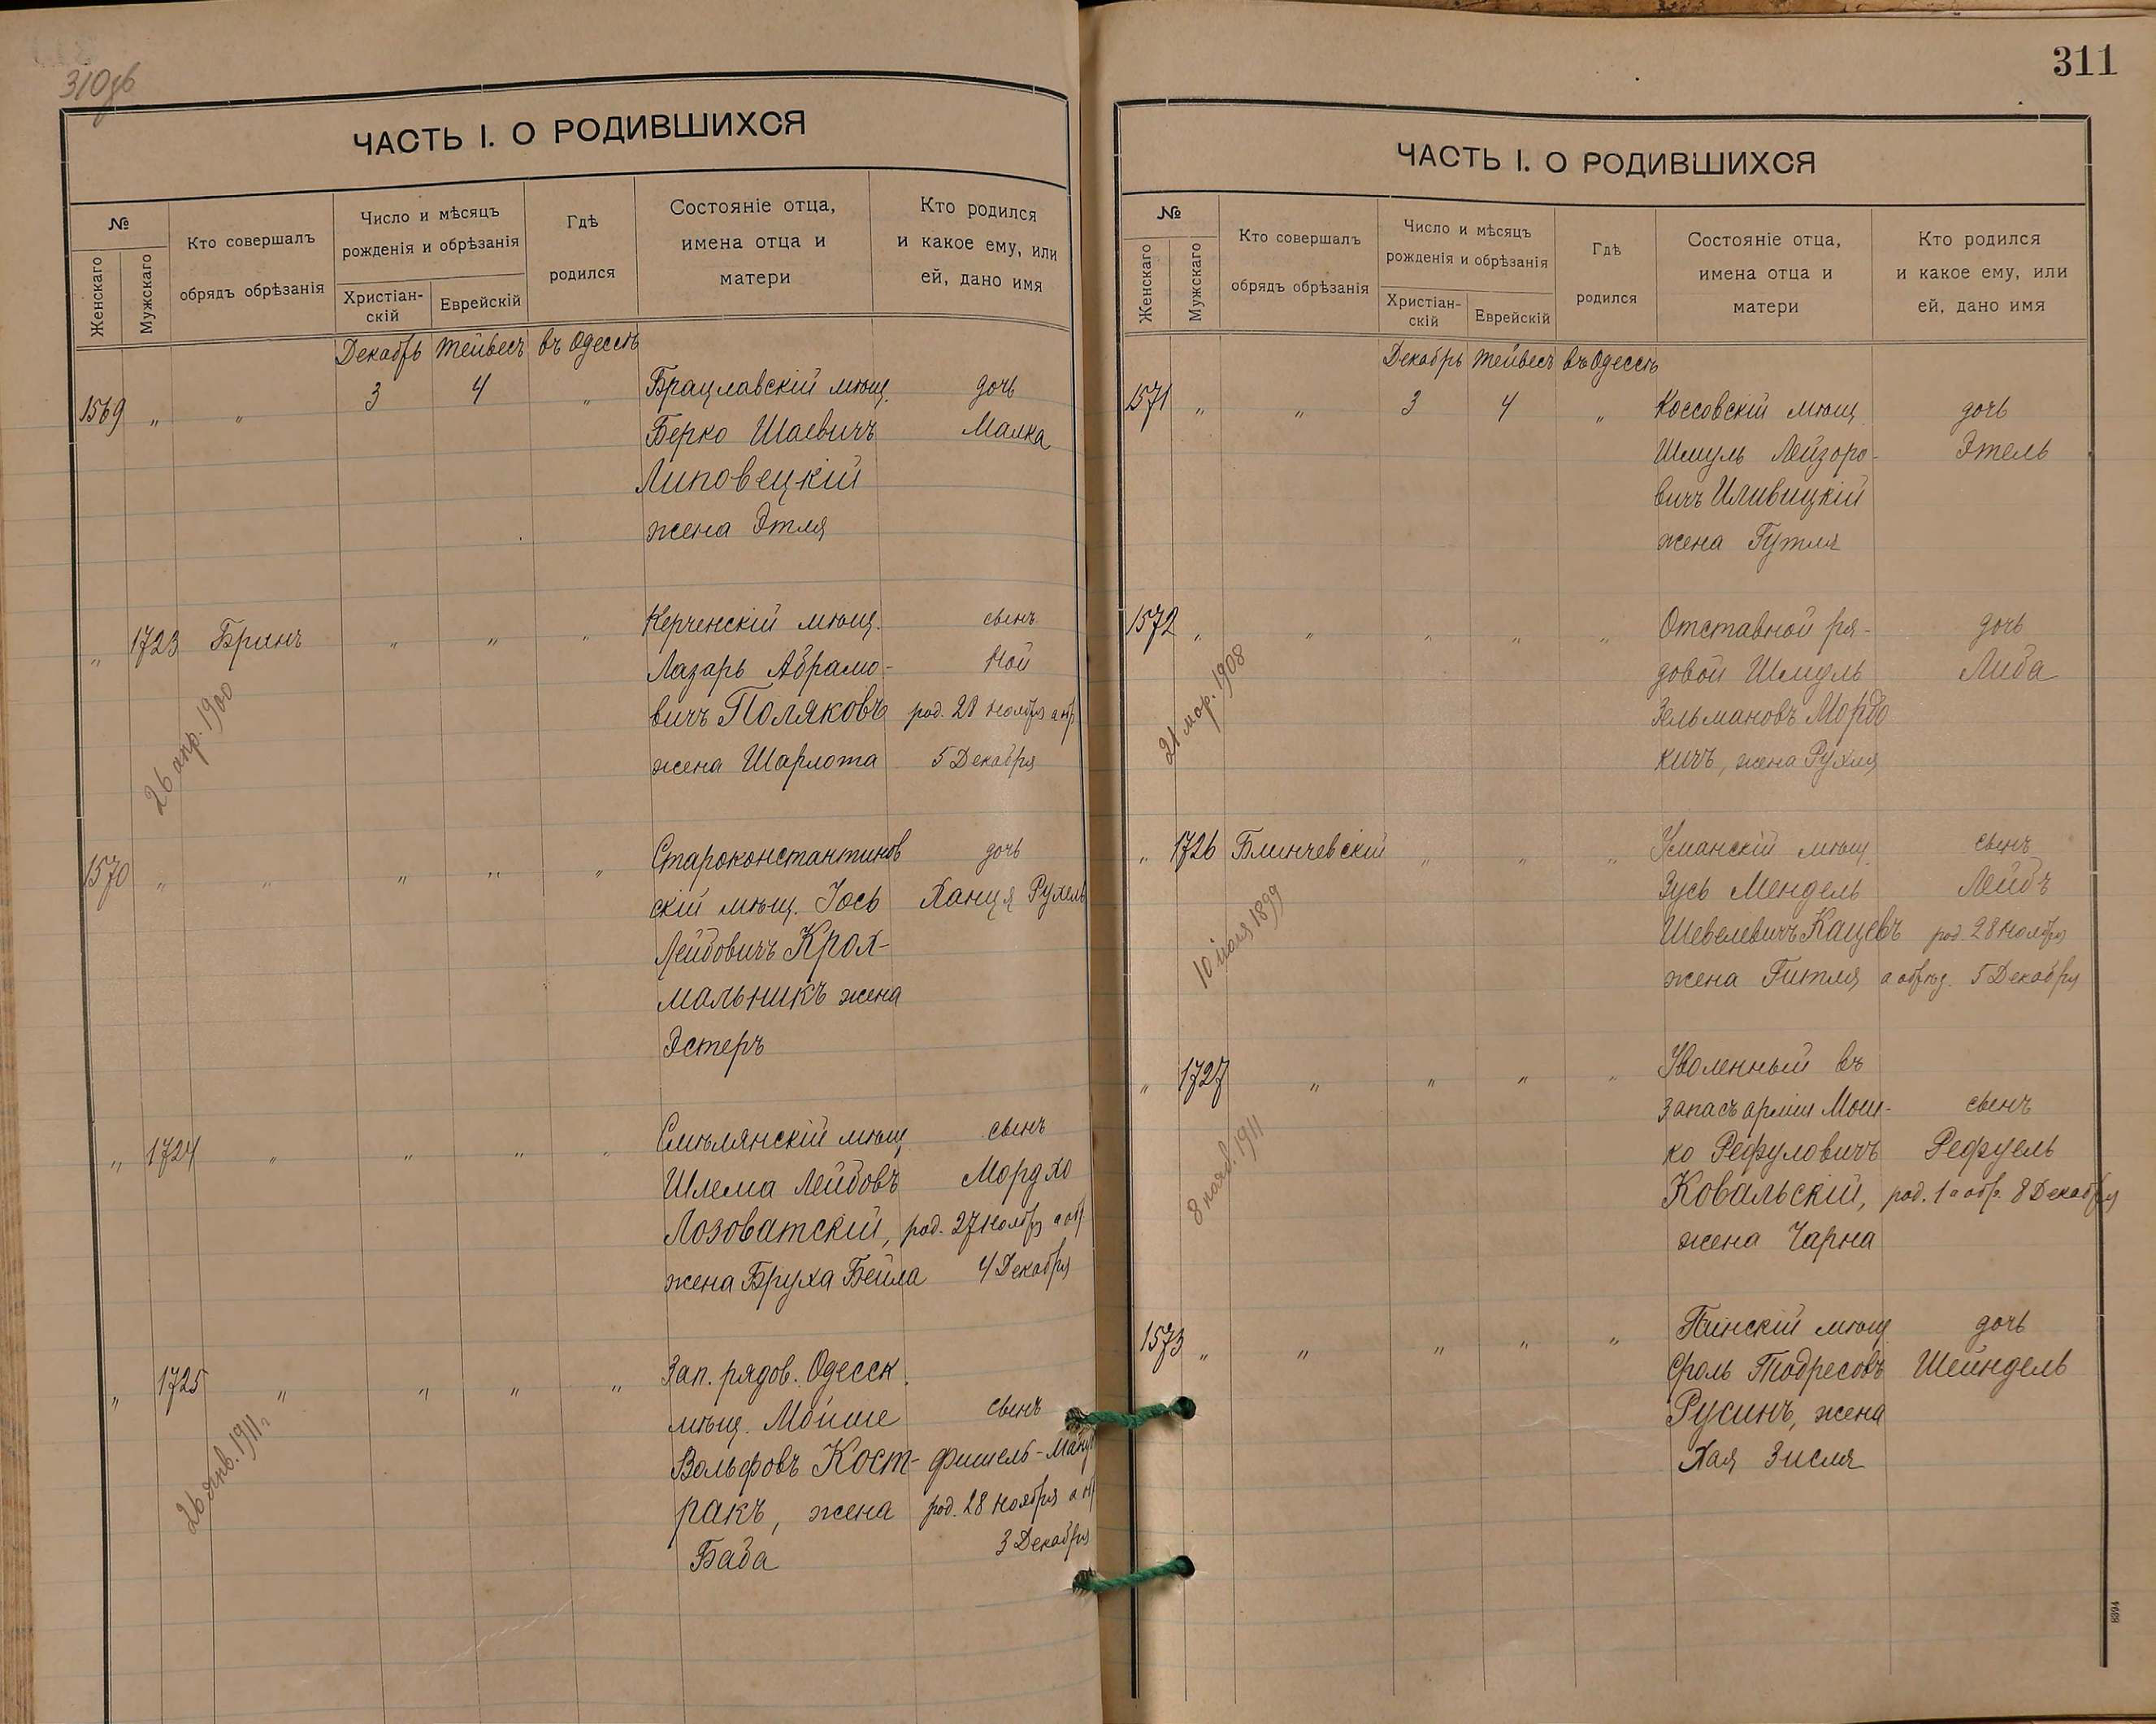 310зв
ЧАСТЬ I. О РОДИВШИХСЯ
№
Женскаго
Мужскаго
Кто совершалъ
обрядъ обрѣзанія
Число и мѣсяцъ
рожденія и обрѣзанія
Христіан-
скій
Еврейскій
Гдѣ
родился
Состояніе отца,
имена отца и
матери
Кто родился
и какое ему, или
ей, дано имя
Декабрь Тейвесъ въ Одессѣ
1569 " " 3 4 " Брацлавскій мѣщ. дочь
Берко Шаевичъ Малка
Липовецкій
жена Этля
" 1723 Бринъ " " " Керченскій мѣщ. сынъ
Лазарь Абрамо- Ной
вичъ Поляковъ род. 28 Ноября а обр.
жена Шарлота 5 Декабря
26 апр. 1900
1570 " " " " " Староконстантинов дочь
скій мѣщ. Іось Ханця Рухель
Лейбовичъ Крах-
мальникъ жена
Эстеръ
" 1724 " " " " Смѣлянскій мѣщ сынъ
Шлема Лейбовъ Мордхо
Лозоватскій, род. 27 Ноября а обр
жена Бруха Бейла 4 Декабря
" 1725 " " " " Зап. рядов. Одесск.
мѣщ. Мойше сынъ
Вольфовъ Кост- Фишель-
ракъ, жена род. 28 Ноября а обр
Баба 3 Декабря
26 янв. 1911г
311
ЧАСТЬ I. О РОДИВШИХСЯ
№
Женскаго
Мужскаго
Кто совершалъ
обрядъ обрѣзанія
Число и мѣсяцъ
рожденія и обрѣзанія
Христіан-
скій
Еврейскій
Гдѣ
родился
Состояніе отца,
имена отца и
матери
Кто родился
и какое ему, или
ей, дано имя
Декабрь Тейвесъ въ Одессѣ
1571 " " 3 4 " Коссовскій мѣщ дочь
Шмуль Лейзоро- Этель
вичъ Иливицкій
жена Гутля
1572 " " " " " Отставной ря- дочь
довой Шмуль Либа
Зельмановъ Мордо
кичъ, жена Рухля
21 мар. 1908
" 1726 Блинчевскій " " " Уманскій мѣщ сынъ
Зусь Мендель Лейбъ
Шевелевичъ Кацевъ род. 28 Ноября
жена Гитля а обрѣз. 5 Декабря
10 іюля 1899
" 1727 " " " " Уволенный въ
запасъ арміи Мош- сынъ
ко Рефуловичъ Рефуель
Ковальскій, род. 1 а обр. 8 Декабря
жена Чарна
8 нояб. 1911
1573 " " " " " Пинскій мѣщ дочь
Сроль Тодресовъ Шейндель
Русинъ, жена
Хая Зисля
8394